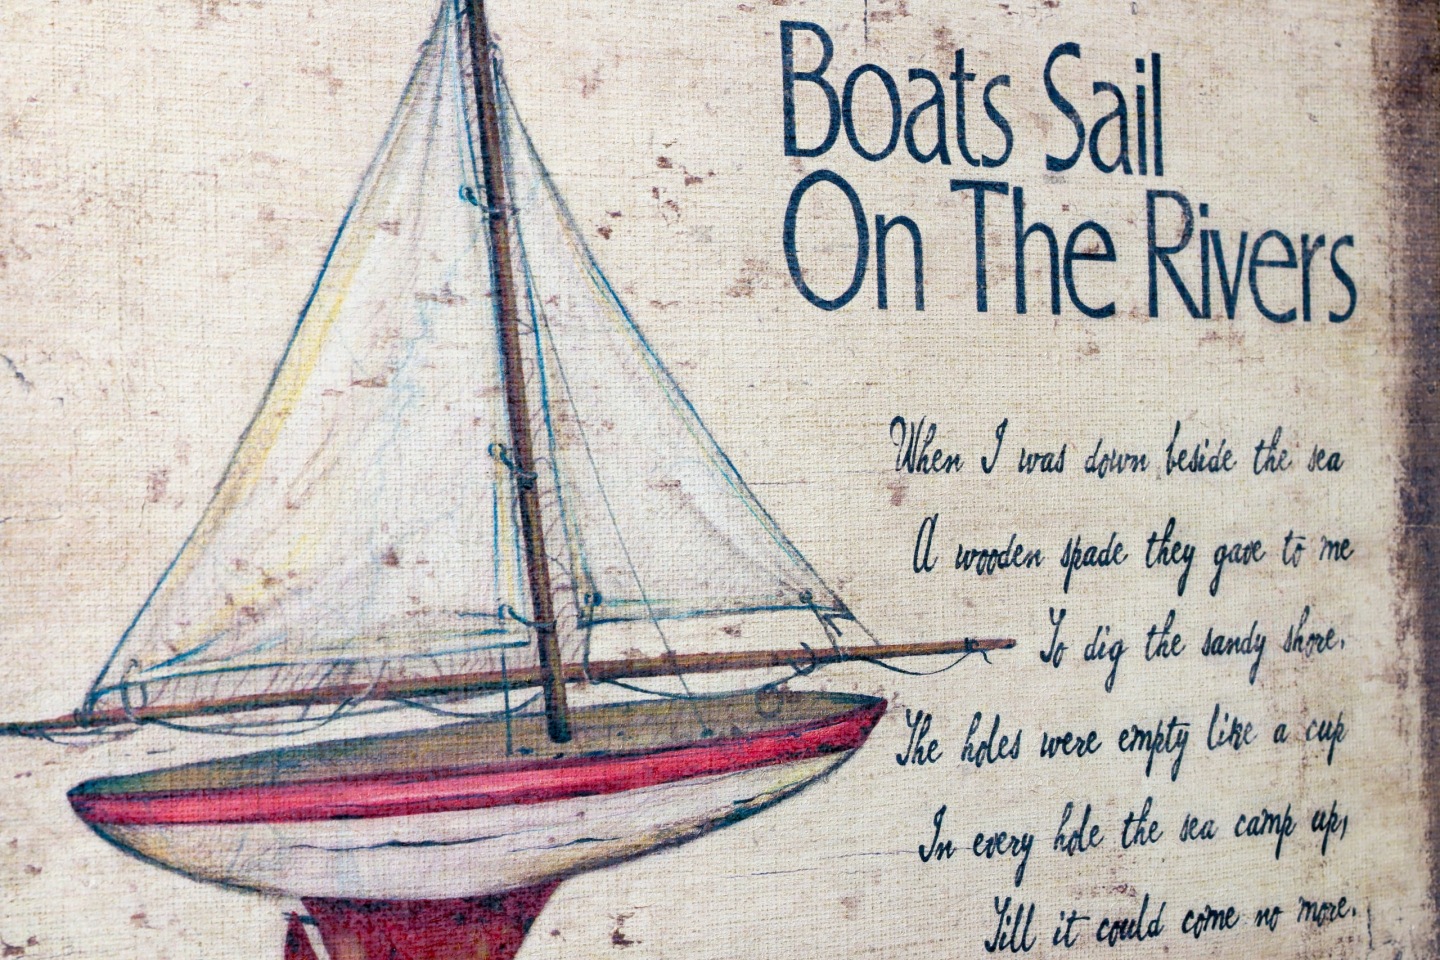 Boats Sail
On The Rivers
When I was down beside the sea
A wooden spade they gave to me
To dig the sandy shore.
The holes were empty like a cup
In every hole the sea camp up,
Till it could come no more.